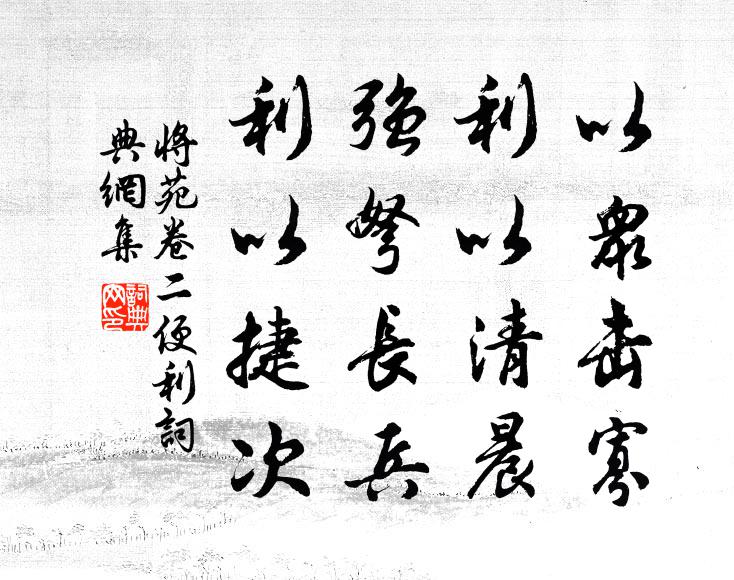 以眾擊寡
利以清晨
強弩長兵
利以捷次
將苑卷二便利詞
典網集
詞典網印